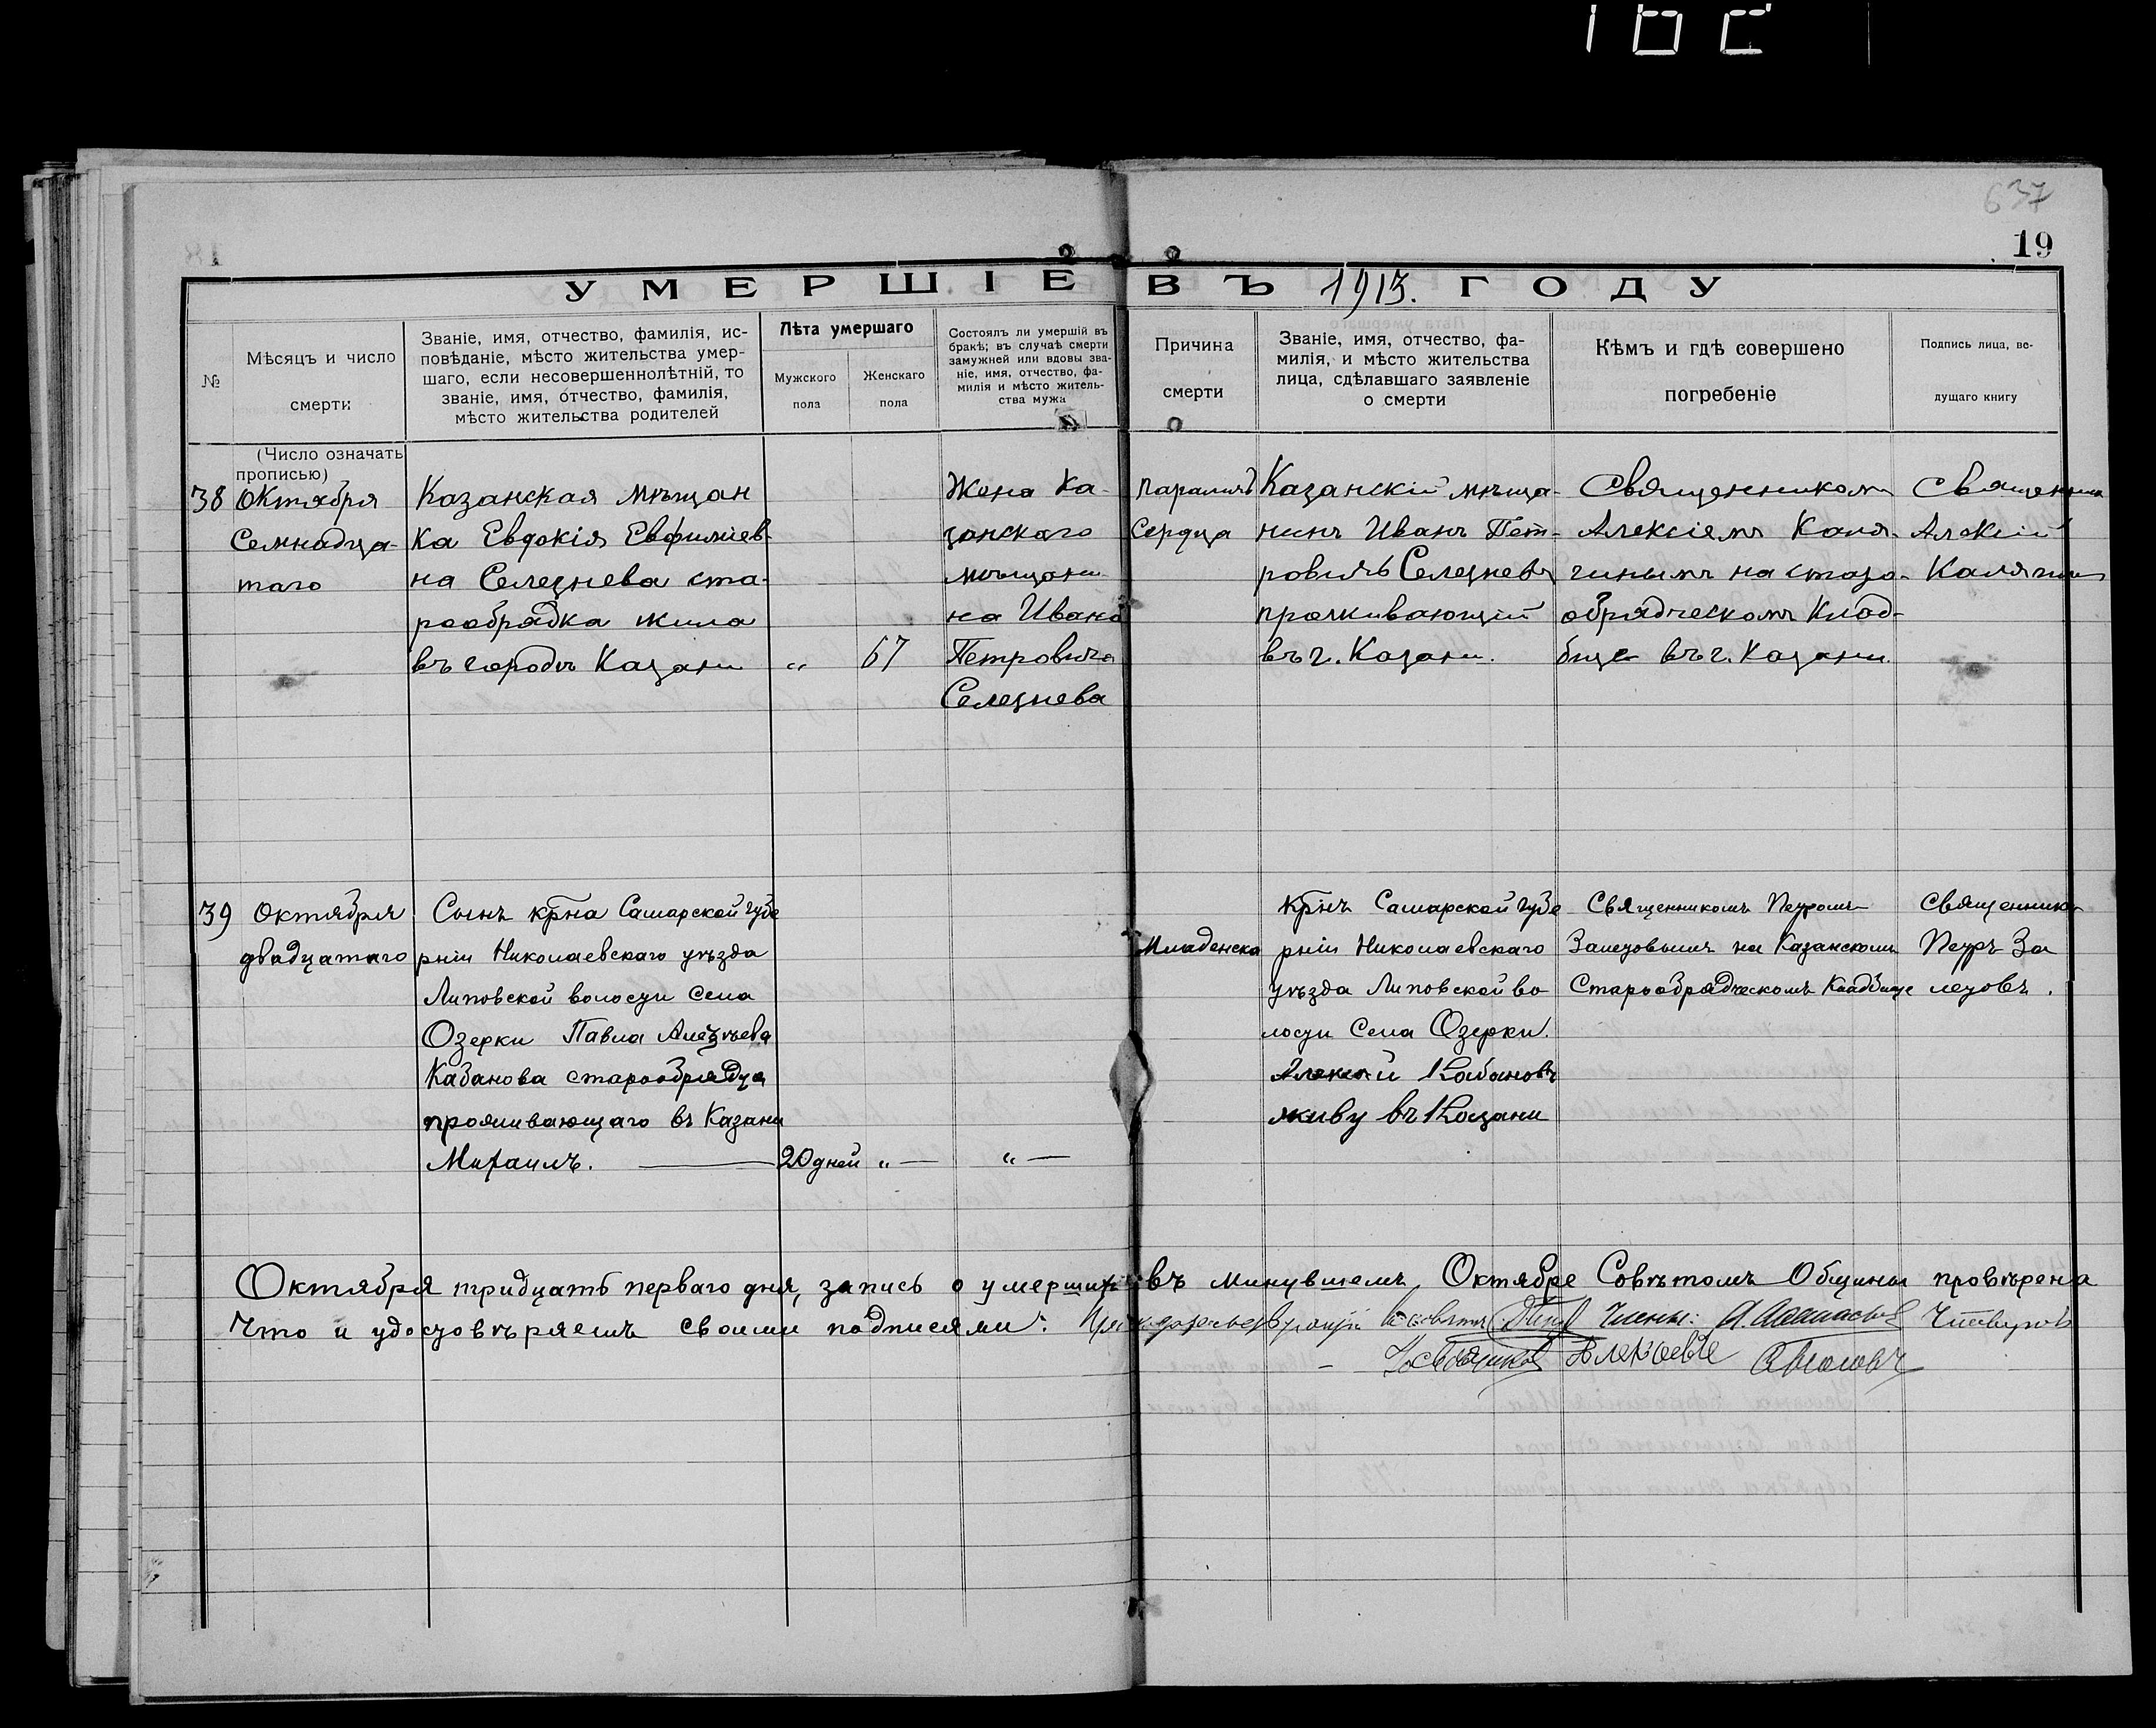 637
19
УМЕРШІЕ ВЪ 1913. ГОДУ
№
Мѣсяцъ и число
смерти
Званіе, имя, отчество, фамилія, ис-
повѣданіе, мѣсто жительства умер-
шаго, если несовершеннолѣтній, то
званіе, имя, отчество, фамилія,
мѣсто жительства родителей
Лѣта умершаго
Мужского
пола
Женскаго
пола
Состоялъ ли умершій въ
бракѣ; въ случаѣ смерти
замужней или вдовы зва-
ніе, имя, отчество, фа-
милія и мѣсто житель-
ства мужа
Причина
смерти
Званіе, имя, отчество, фа-
милія, и мѣсто жительства
лица, сдѣлавшаго заявленіе
о смерти
Кѣмъ и гдѣ совершено
погребеніе
Подпись лица, ве-
дущаго книгу
(Число означать
прописью)
38
Октября
Семнадца-
таго
Казанская мѣщан
ка Евдокія Евфиміев-
на Селезнева ста-
рообрядка жила
въ городѣ Казани
„
67
Жена Ка-
занскаго
мѣщани
на Ивана
Петровича
Селезнева
параличъ
Сердца
Казанскій мѣща-
нинъ Иванъ Пет-
ровичъ Селезневъ
проживающій
въ г. Казани.
Священникомъ
Алексіемъ Каля-
гинымъ на старо-
обрядческомъ Клад-
бище въ г. Казани.
Священникъ
Алексій
Калягинъ
39
Октября
двадцатаго
Сынъ крна Самарской губе
рніи Николаевскаго уѣзда
Липовской волости села
Озерки Павла Алексѣева
Кабанова старообрядца
проживающаго въ Казани
Михаилъ.
20 дней
„
„
Младенска
Крнъ Самарской губе
рніи Николаевскаго
уѣзда Липовской во
лости Села Озерки.
Алексѣй Кабановъ
живу въ Казани
Священникомъ Петромъ
Залетовымъ на Казанскомъ
Старообрядческомъ Кладбище
Священникъ
Петръ За
летовъ.
Октября тридцать перваго дня, запись о умершихъ въ минувшемъ Октябре Совѣтомъ Общины провѣрена
Что и удостовѣряемъ своими подписями: Члены:
Алексѣевъ